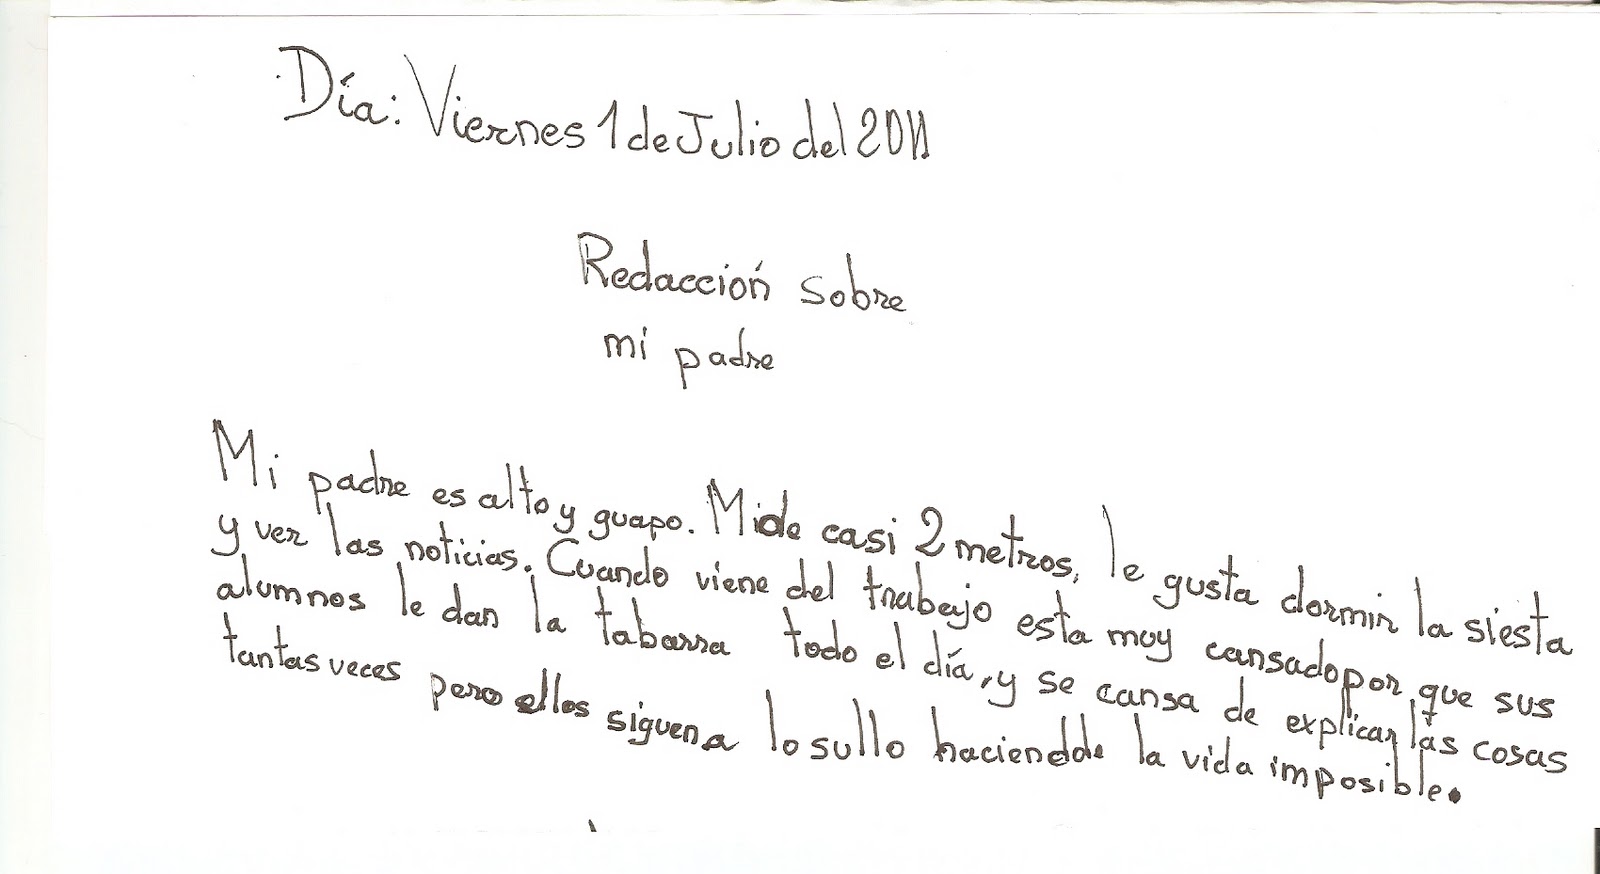 Día: Viernes 1 de Julio del 2011
Redacción sobre
mi padre
Mi padre es alto y guapo. Mide casi 2 metros, le gusta dormir la siesta
y ver las noticias. Cuando viene del trabajo esta muy cansado por que sus
alumnos le dan la tabarra todo el día, y se cansa de explicar las cosas
tantas veces pero ellos siguen a lo sullo haciendole la vida imposible.